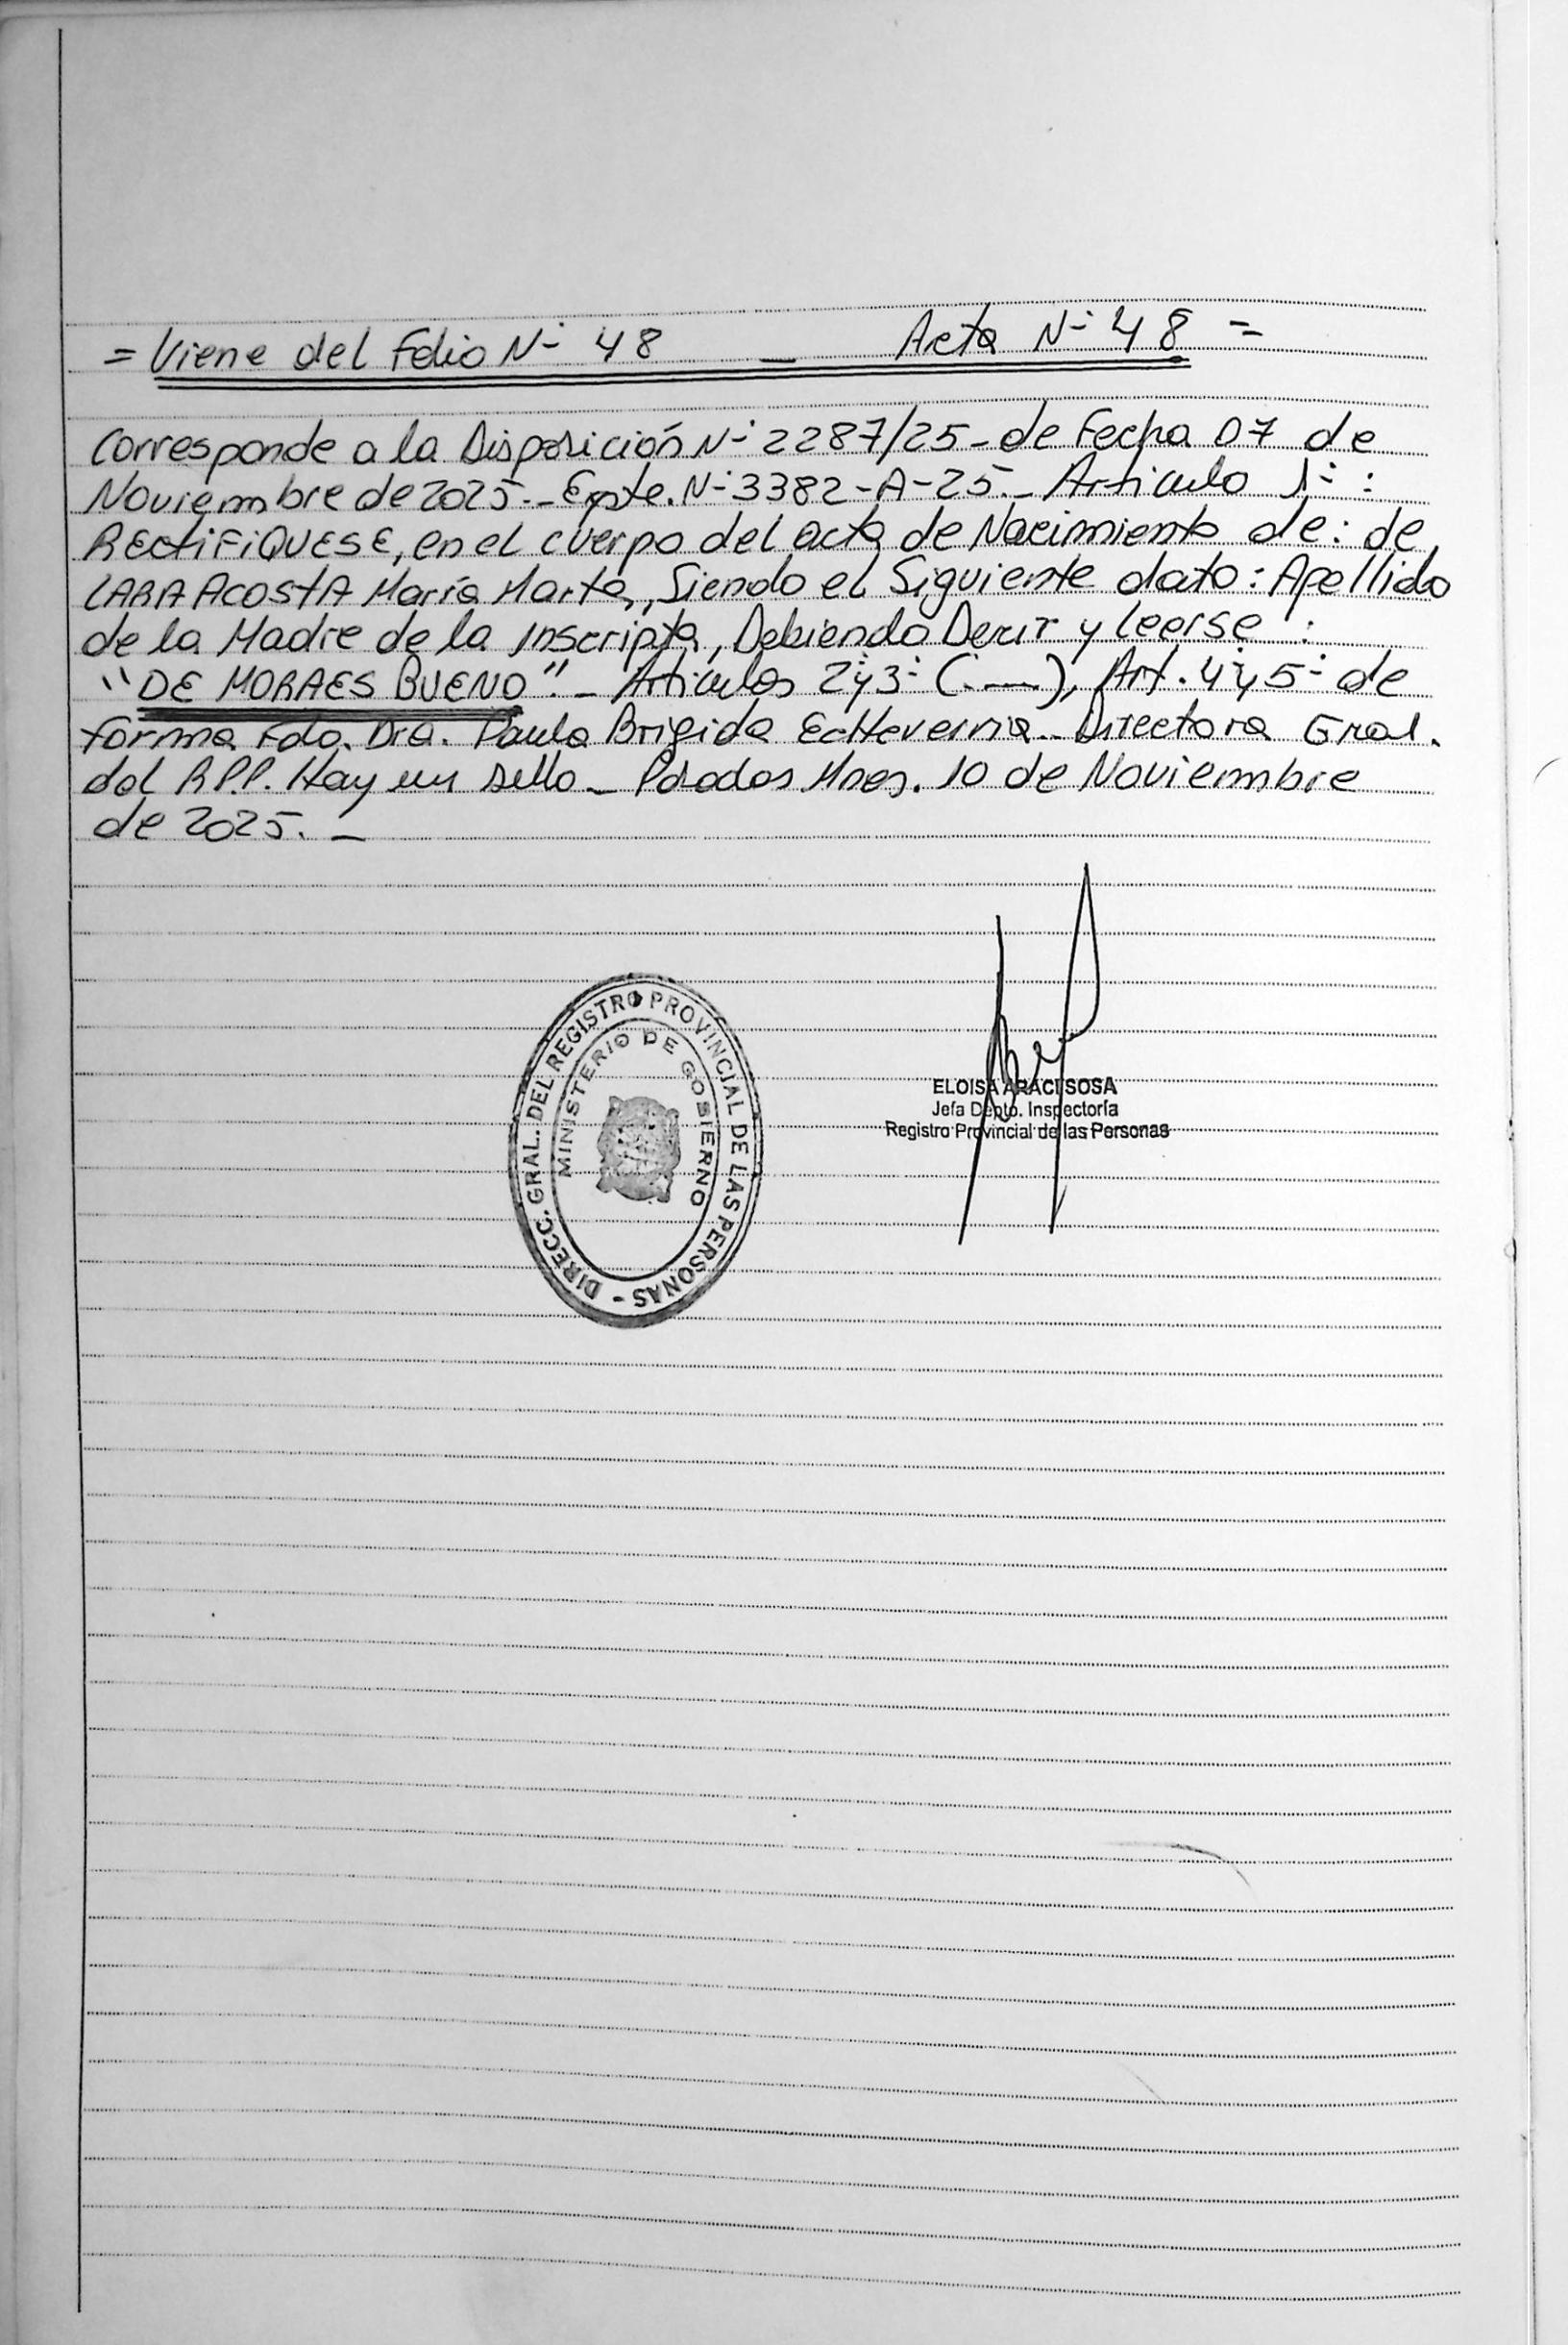 = Viene del Folio N- 48 — Acta N- 48 =
Corresponde a la Disposición N- 2287/25 - de Fecha 07 de
Noviembre de 2025.- Expte. N- 3382-A-25.- Articulo 1- :
RECtiFiQUESE, en el cuerpo del acta de Nacimiento de: de
LARA ACOStA María Marta, Siendo el Siguiente dato: Apellido
de la Madre de la Inscripta, Debiendo Decir y leerse :
"DE MORAES BUENO". - Articulos 2- y 3- (.—), Art. 4- y 5- de
forma Fdo. Dra. Paula Brigida Echeverria - Directora Gral.
del R.P.P. Hay un sello - Posadas Mnes. 10 de Noviembre
de 2025. -
DIRECC. GRAL. DEL REGISTRO PROVINCIAL DE LAS PERSONAS -
MINISTERIO DE GOBIERNO
ELOISA ARACI SOSA
Jefa Depto. Inspectoría
Registro Provincial de las Personas